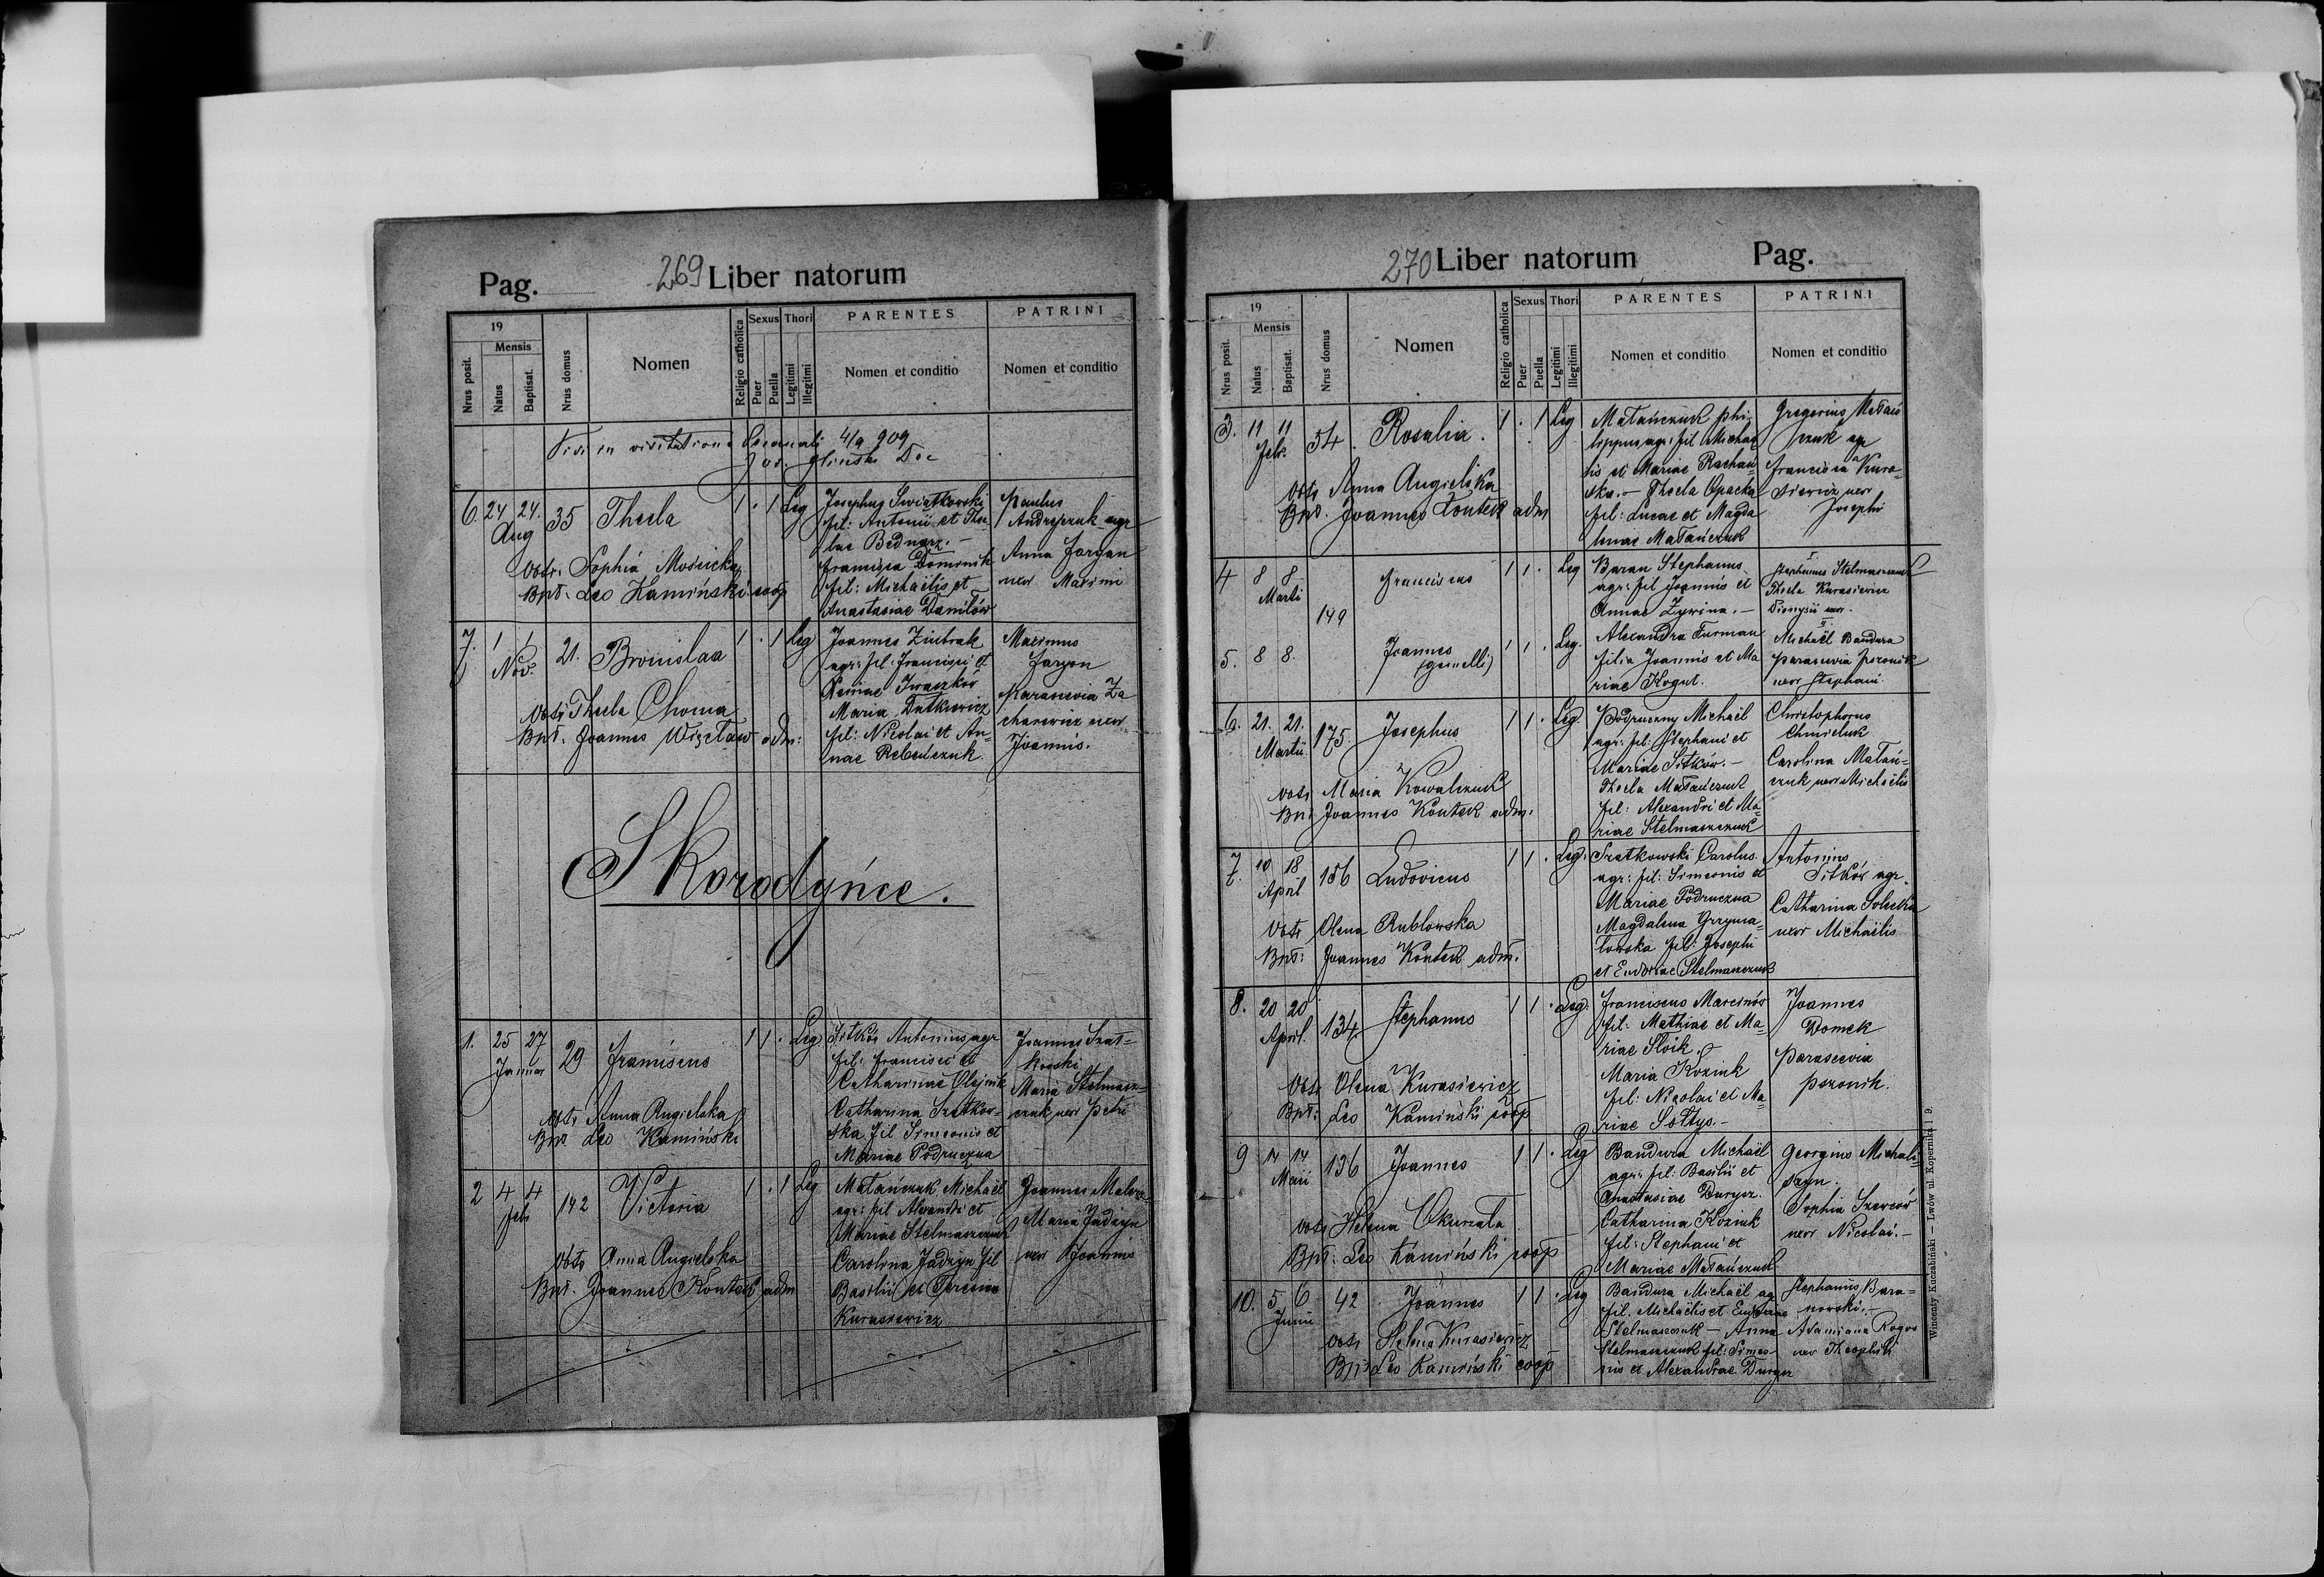 Pag.
269 Liber natorum
19
Mensis
Nrus posit.
Natus
Baptisat.
Nrus domus
Nomen
Religio catholica
Sexus
Puer
Puella
Thori
Legitimi
Illegitmi
PARENTES
Nomen et conditio
PATRINI
Nomen et conditio
Vidi in visitatione Decanali 4/9 909
6. 24 24. 35 Thecla 1 . 1 Leg
Aug
Josephus Swiątkowski
fil: Antonii et Thec
lae Bednarz. –
Francisca Dominik
fil: Michaelis et
Anastasiae Daniłów
Paulus
Andrejczuk agr
Anna Jargan
uxor Maximi
obst. Sophia Mościcka
Bpt. Leo Kamiński coop
7. 1 1 21. Bronislaa 1 . 1 Leg
Nov.
Joannes Ziubrak
agr: fil: Francisci et
Xeniae Iwaszków
Maria Dutkiewicz
fil: Nicolai et An-
nae Rebenczuk.
Maximus
Jargon
Parascevia Za
charewicz uxor
Joannis.
obst Thecla Choma
Bpt. Joannes Więcław adm:
Skorodyńce.
1. 25 27 29 Franciscus 1 1 . Leg
Januar
Sitków Antonius agr
fil: Francisci et
Catharinae Olejnik
Catharina Szatkow-
ska fil Simeonis et
Mariae Podruczna
Joannes Szat=
kowski
Maria Stelmasz-
czuk uxor Petri
obst Anna Angielska
Bpt Leo Kamiński
2 4 4 142 Victoria 1 . 1 Leg
Febr
Matańczuk Michaël
agr: fil Alexandri et
Mariae Stelmaszczuk
Carolina Jadzyn fil
Basilii et Teresiae
Kurasiewicz
Maria Jadzyn
uxor Joannis
obst Anna Angielska
Bpt. Joannes Kontek adm
270 Liber natorum
Pag.
19
Mensis
Nrus posit.
Natus
Baptisat.
Nrus domus
Nomen
Religio catholica
Sexus
Puer
Puella
Thori
Legitimi
Illegitimi
PARENTES
Nomen et conditio
PATRINI
Nomen et conditio
3. 11 11 54. Rosalia. 1 . 1 Leg
Febr.
Matańczuk Phi-
lippus agr: fil Michaë
lis et Mariae Rachań-
ska. – Thecla Opacka
fil: Lucae et Magda
lenae Matańczuk
Gregorius Matań
czuk agr
Francisca Kura-
siewicz uxor
Josephi
obst Anna Angielska
Bpt. Joannes Kontek adm
4 8 8 149 Franciscus 1 1 . Leg
Marti
Baran Stephanus
agr: fil Joannis et
Annae Zywina. –
Alexandra Furman
filia Joannis et Ma
riae Kogut.
I
Stephanus Stelmaszczuk
Thecla Kurasiewicz
Dionysii uxor.
II.
Michaël Bandura
Parascevia Pszonik
uxor Stephani.
5. 8 8. Joannes 1 1 . Leg.
(gemelli)
6. 21. 21. 175. Josephus 1 1 . Leg
Martii
Podruczny Michaël
agr: fil: Stephani et
Mariae Sitkow. –
Thecla Matańczuk
fil: Alexandri et Ma-
riae Stelmaszczuk
Christophorus
Chmieluk
Carolina Matań=
czuk uxor Michaëlis
obst Maria Kowalczuk
Bpt Joannes Kontek adm.
7. 10 18 156 Ludovicus 1 1 . Leg.
April
Szatkowski Carolus
agr: fil: Simeonis et
Mariae Podruczna
Magdalena Grzyma-
łowska fil: Josephi
et Eudoxiae Stelmaszczuk
Antonius
Sitków agr.
Catharina Solecka
uxor Michaëlis
obst Olena Rublowska
Bpt: Joannes Kontek adm.
8. 20 20 134. Stephanus 1 1 . Leg.
April.
Franciscus Marcinów
fil: Mathiae et Ma-
riae Słoik.
Maria Koziuk
fil: Nicolai et Ma-
riae Sołtys. –
Joannes
Domek
Parascevia
Pszonik.
Obst Olena Kurasiewicz
Bpt: Leo Kamiński coop
9 14 14 136 Joannes 1 1 . Leg
Maii
Bandura Michaël
agr: fil: Basilii et
Anastasiae Durycz.
Catharina Koziuk
fil: Stephani et
Mariae Matańczuk
Georgius Michali-
szyn.
Sophia Szewców
uxor Nicolai. –
obst Helena Okurzata
Bpt: Leo Kamiński coop
10. 5 6 42. Joannes 1 1 . Leg
Junii
Bandura Michaël ag
fil. Michaëlis et Eudoxiae
Stelmaszczuk – Anna
Stelmaszczuk fil: Simeo-
nis et Alexandrae Durycz
Stephanus Bara=
nowski. –
Damiana Rogos
uxor Theophili
obst Helena Kurasiewicz
Bpt Leo Kamiński coop
Wincenty Kuczabiński — Lwów ul. Kopernika l 9.